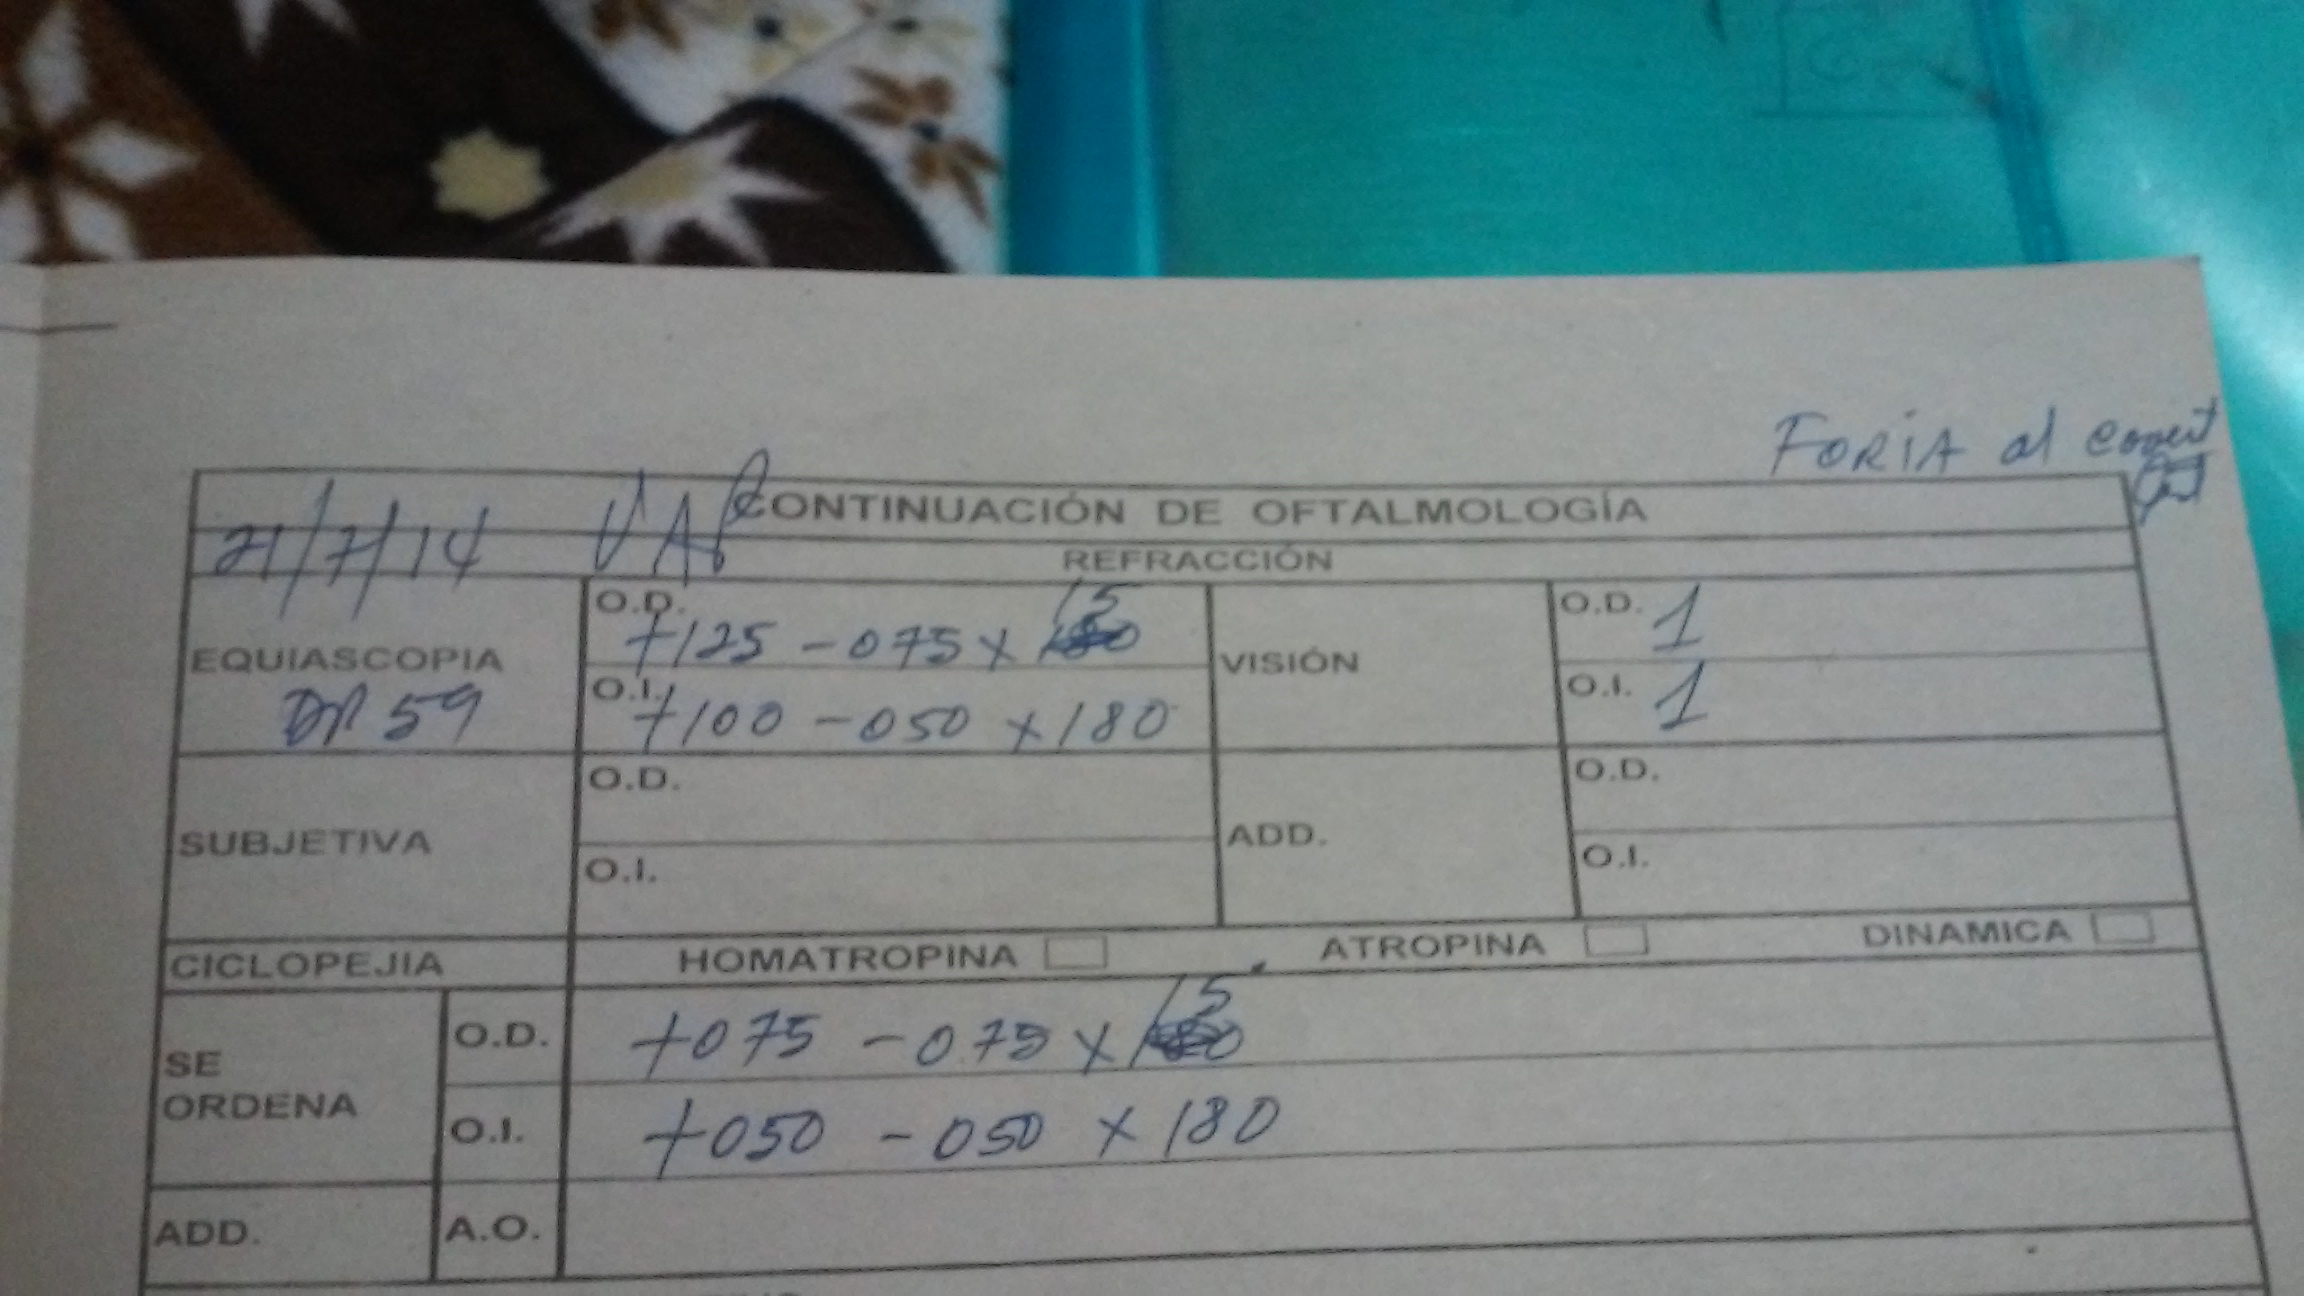 FORIA al covert
CONTINUACIÓN DE OFTALMOLOGÍA
21/7/14
REFRACCIÓN
EQUIASCOPIA
DP 59
O.D. +125 -075 x 15
O.I. +100 -050 x 180
VISIÓN
O.D. 1
O.I. 1
SUBJETIVA
O.D.
O.I.
ADD.
O.D.
O.I.
CICLOPEJIA HOMATROPINA ATROPINA DINAMICA
SE ORDENA
O.D. +075 -075 x 15
O.I. +050 -050 x 180
ADD. A.O.